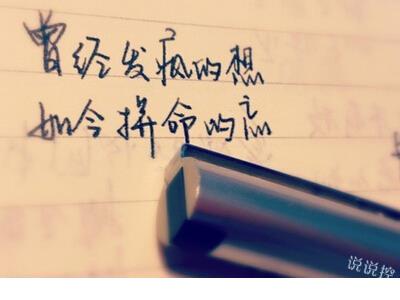 曾经发疯的想
如今拼命的忘
说说控